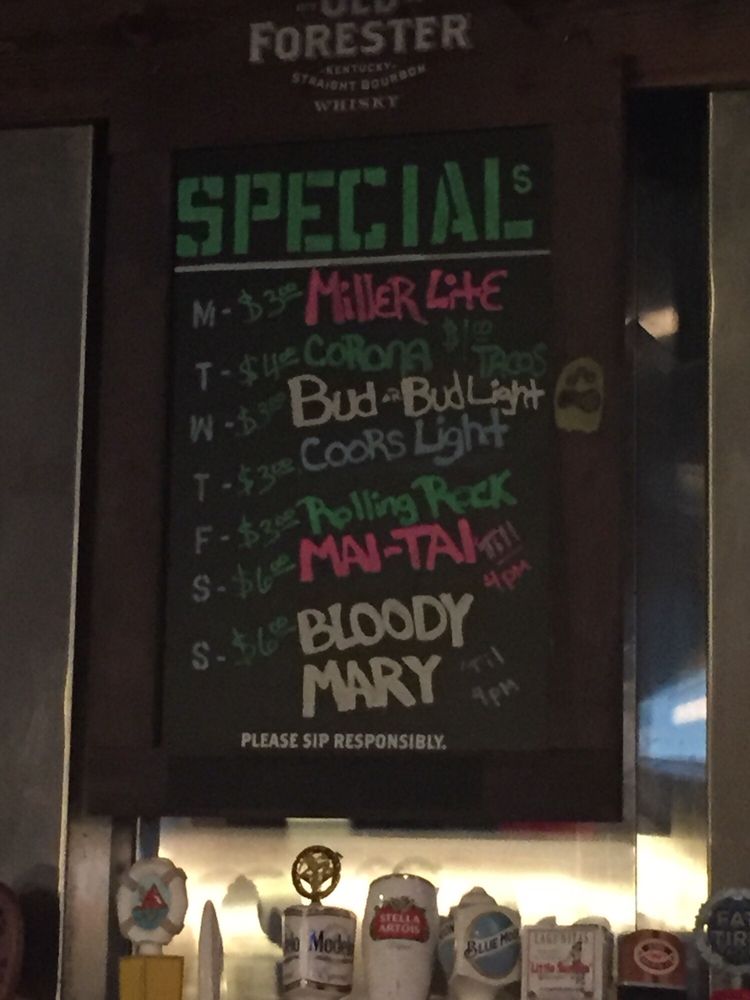 OLD
FORESTER
KENTUCKY
STRAIGHT BOURBON
WHISKY
SPECIALS
M - $3.00 Miller Lite
T - $4.00 Corona $1.00 Tacos
W - $3.00 Bud OR Bud Light
T - $3.00 Coors Light
F - $3.00 Rolling Rock
S - $6.00 MAI-TAI Till 4pm
S - $6.00 BLOODY MARY Til 4pm
PLEASE SIP RESPONSIBLY.
Modelo
STELLA ARTOIS
BLUE MOON
LAGUNITAS
FAT TIRE